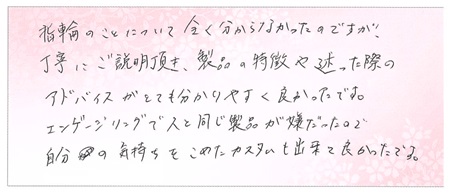 指輪のことについて全く分からなかったのですが、
丁寧にご説明頂き、製品の特徴や迷った際の
アドバイスがとても分かりやすく良かったです。
エンゲージリングで人と同じ製品が嫌だったので
自分の気持ちをこめたカスタムも出来て良かったです。